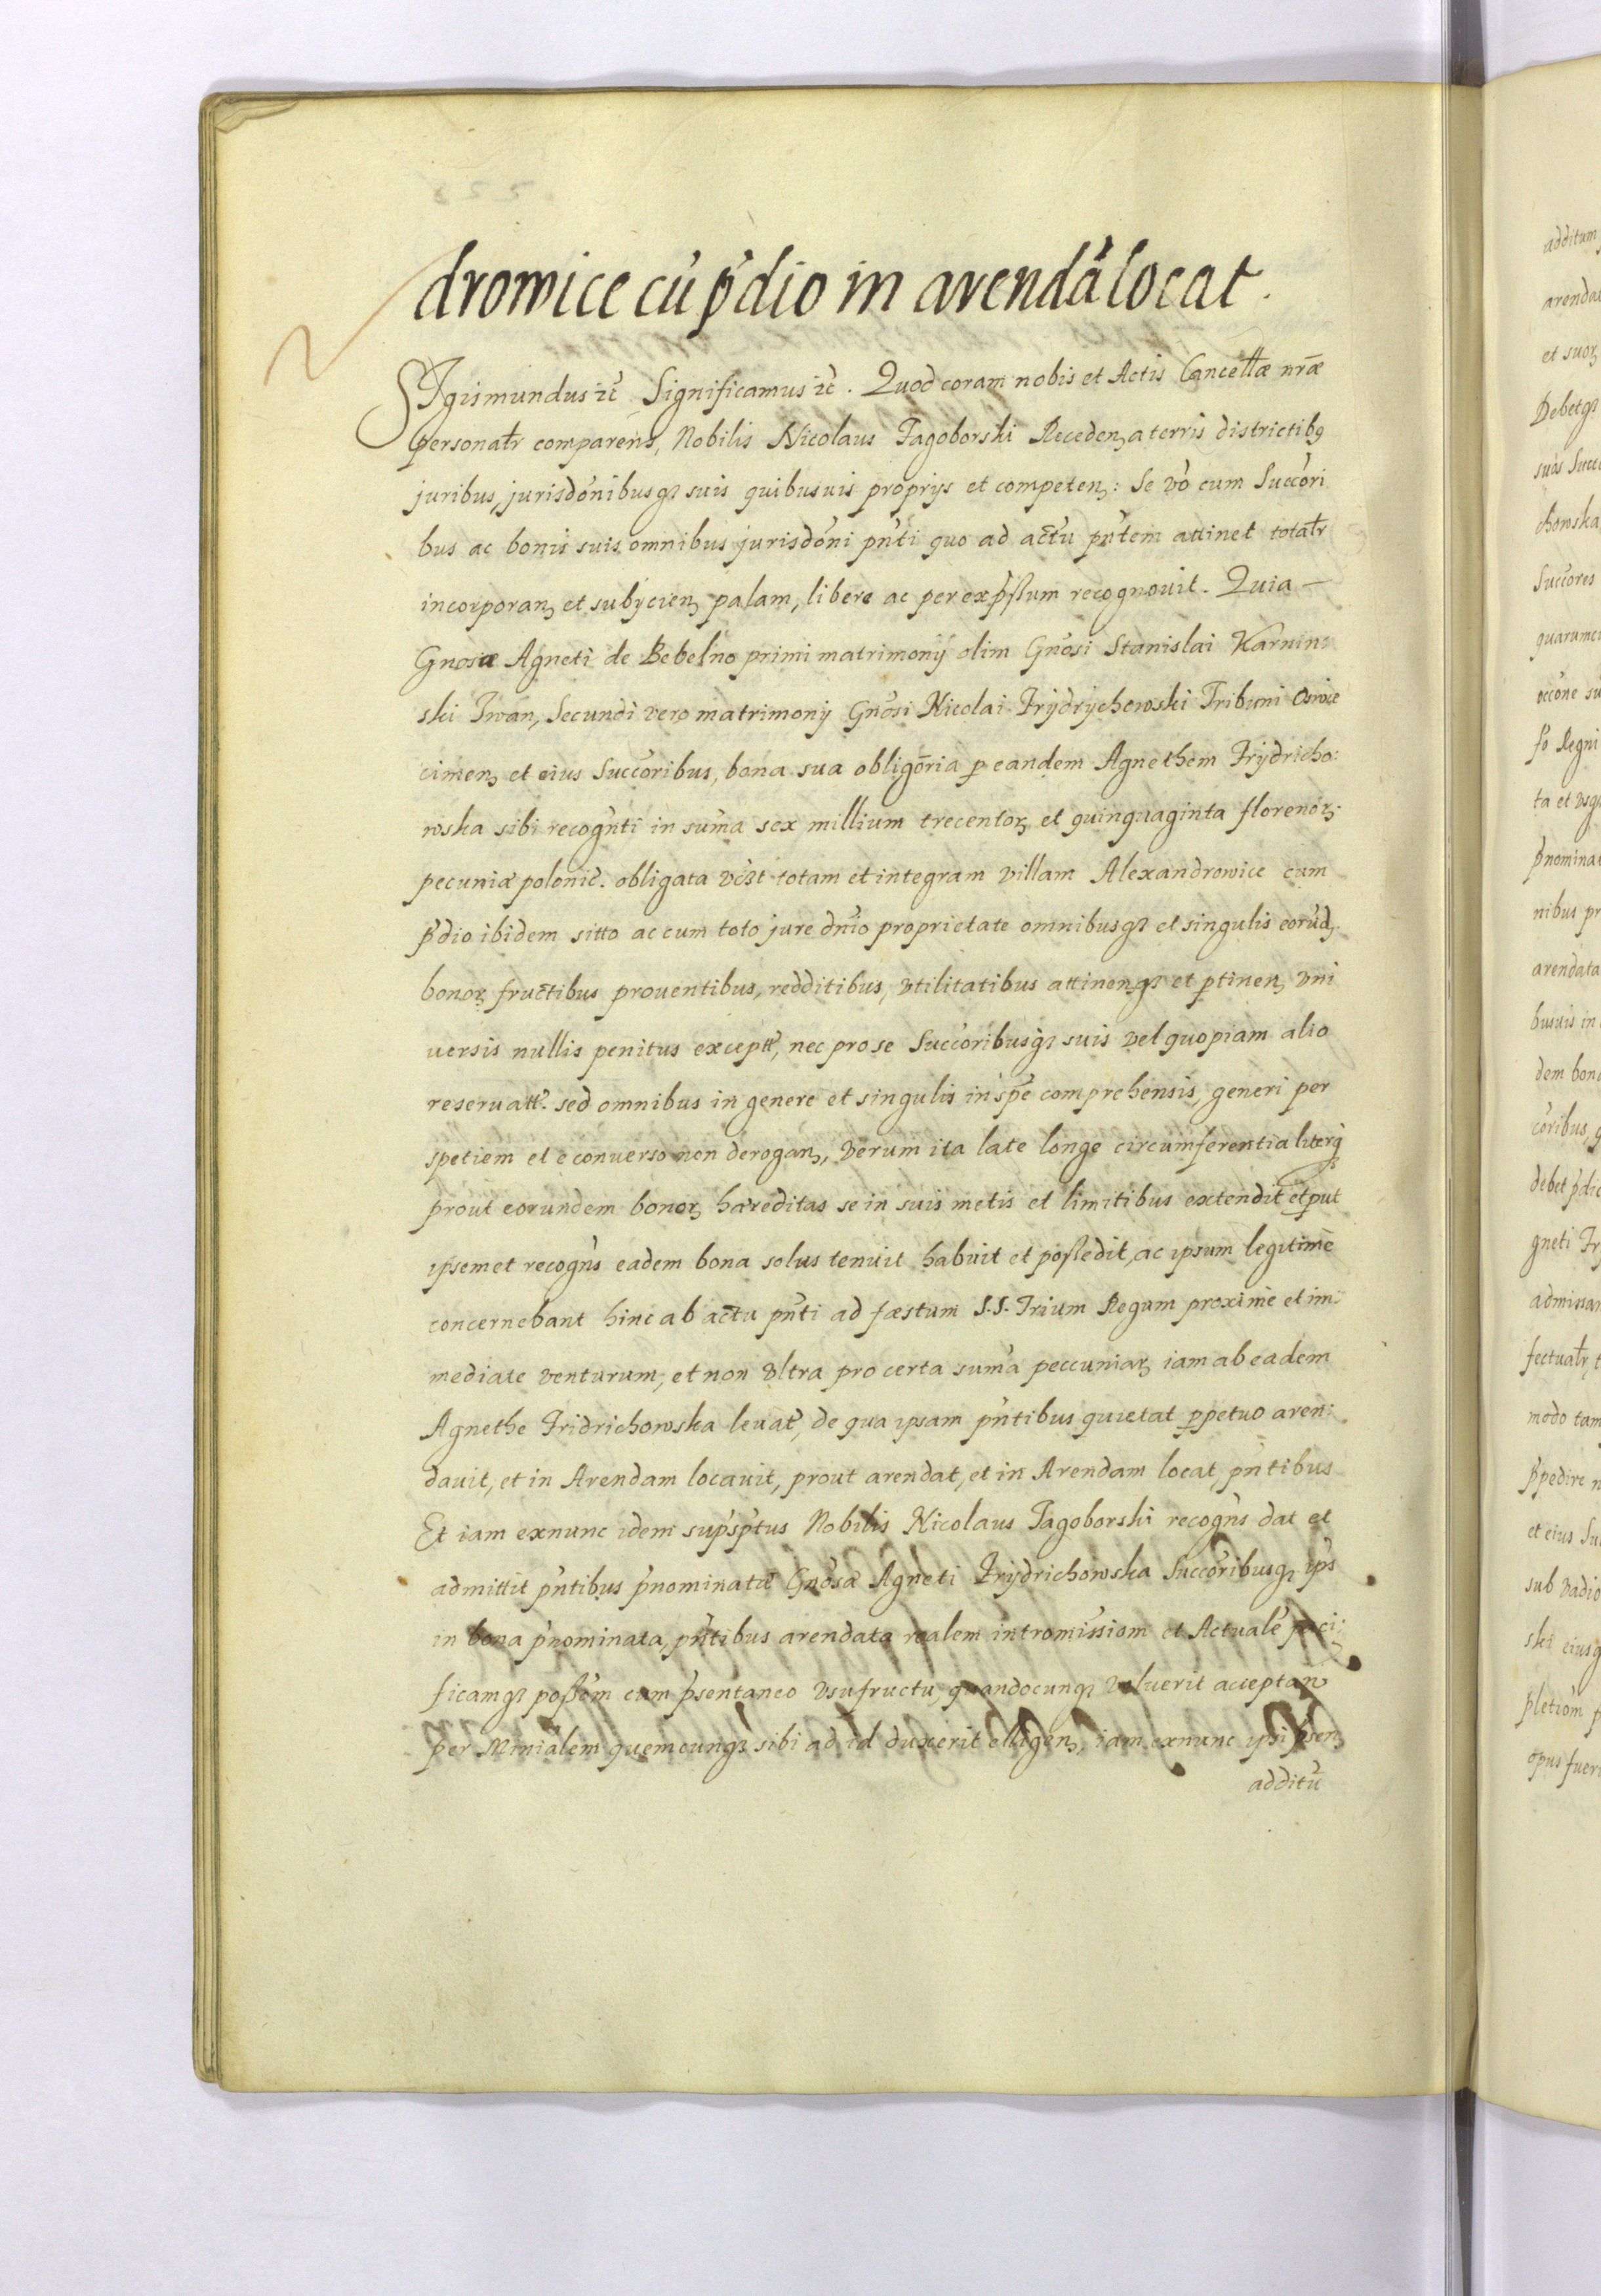 dromice cū p̄dio in arendā locat.
SIgismundus ꝛc̄ Significamus ꝛc̄. Quod coram nobis et Actis Cancellæ nr̄æ
personalr̄ comparens, Nobilis Nicolaus Tagoborski Recedenꝫ a terris districtibꝰ
juribus, jurisdōnibusqꝫ suis quibusuis proprijs et competenꝫ: Se vō cum Succōri
bus ac bonis suis omnibus jurisdōni pn̄ti quo ad actū pn̄tem attinet totalr̄
incorporanꝫ et subijcienꝫ palam, libere ac per exp̄ssum recognouit. Quia —
Gnosæ Agneti de Bebelno primi matrimonij olim Gnōsi Stanislai Karnin:
ski Iwan, Secundi vero matrimonij Gnōsi Nicolai Frijdrijchowski Tribuni Oswie
cimenꝫ et eius Succōribus, bona sua obligōria ꝑ eandem Agnethem Frijdricho:
wska sibi recogn̄ti in sum̄a sex millium trecentorꝫ et quinquaginta florenorꝫ.
pecuniæ polonic̄. obligata vc̄ꝫt totam et integram villam Alexandrowice cum
p̄dio ibidem sitto ac cum toto jure dn̄io proprietate omnibusqꝫ et singulis eorūdꝫ
bonorꝫ fructibus prouentibus, redditibus, vtilitatibus attinenꝫqꝫ et ꝑtinenꝫ vni
uersis nullis penitus exceptt̄, nec pro se Succōribusqꝫ suis vel quopiam alio
reseruatt̄. sed omnibus in genere et singulis in spē comprehensis, generi per
spetiem et e conuerso non deroganꝫ, verum ita late longe circumferentialiterqꝫ
prout eorundem bonorꝫ hæreditas se in suis metis et limitibus extendit et ꝓut
ipsemet recogn̄s eadem bona solus tenuit habuit et possedit, ac ipsum legitimè
concernebant hinc ab actu pn̄ti ad fæstum S.S. Trium Regum proximè et im:
mediate venturum, et non vltra pro certa sum̄a peccuniarꝫ iam ab eadem
Agnethe Fridrichowska leuat̄, de qua ipsam pn̄tibus quietat ꝑpetuo aren:
dauit, et in Arendam locauit, prout arendat, et in Arendam locat, pn̄tibus
Et iam exnunc idem sup̄sp̄tus Nobilis Nicolaus Tagoborski recogn̄s dat et
admittit pn̄tibus p̄nominatæ Gnōsæ Agneti Frijdrichowska Succōribusqꝫ ips̄
in bona p̄nominata, pn̄tibus arendata realem intromissiom et Actualē paci:
ficamqꝫ poss̄em cum p̄sentaneo vsufructu, quandocunqꝫ voluerit acceptan
per Miniālem quemcunqꝫ sibi ad id duxerit elligenꝫ, iam exnunc ipsi p̄senꝫ
additū